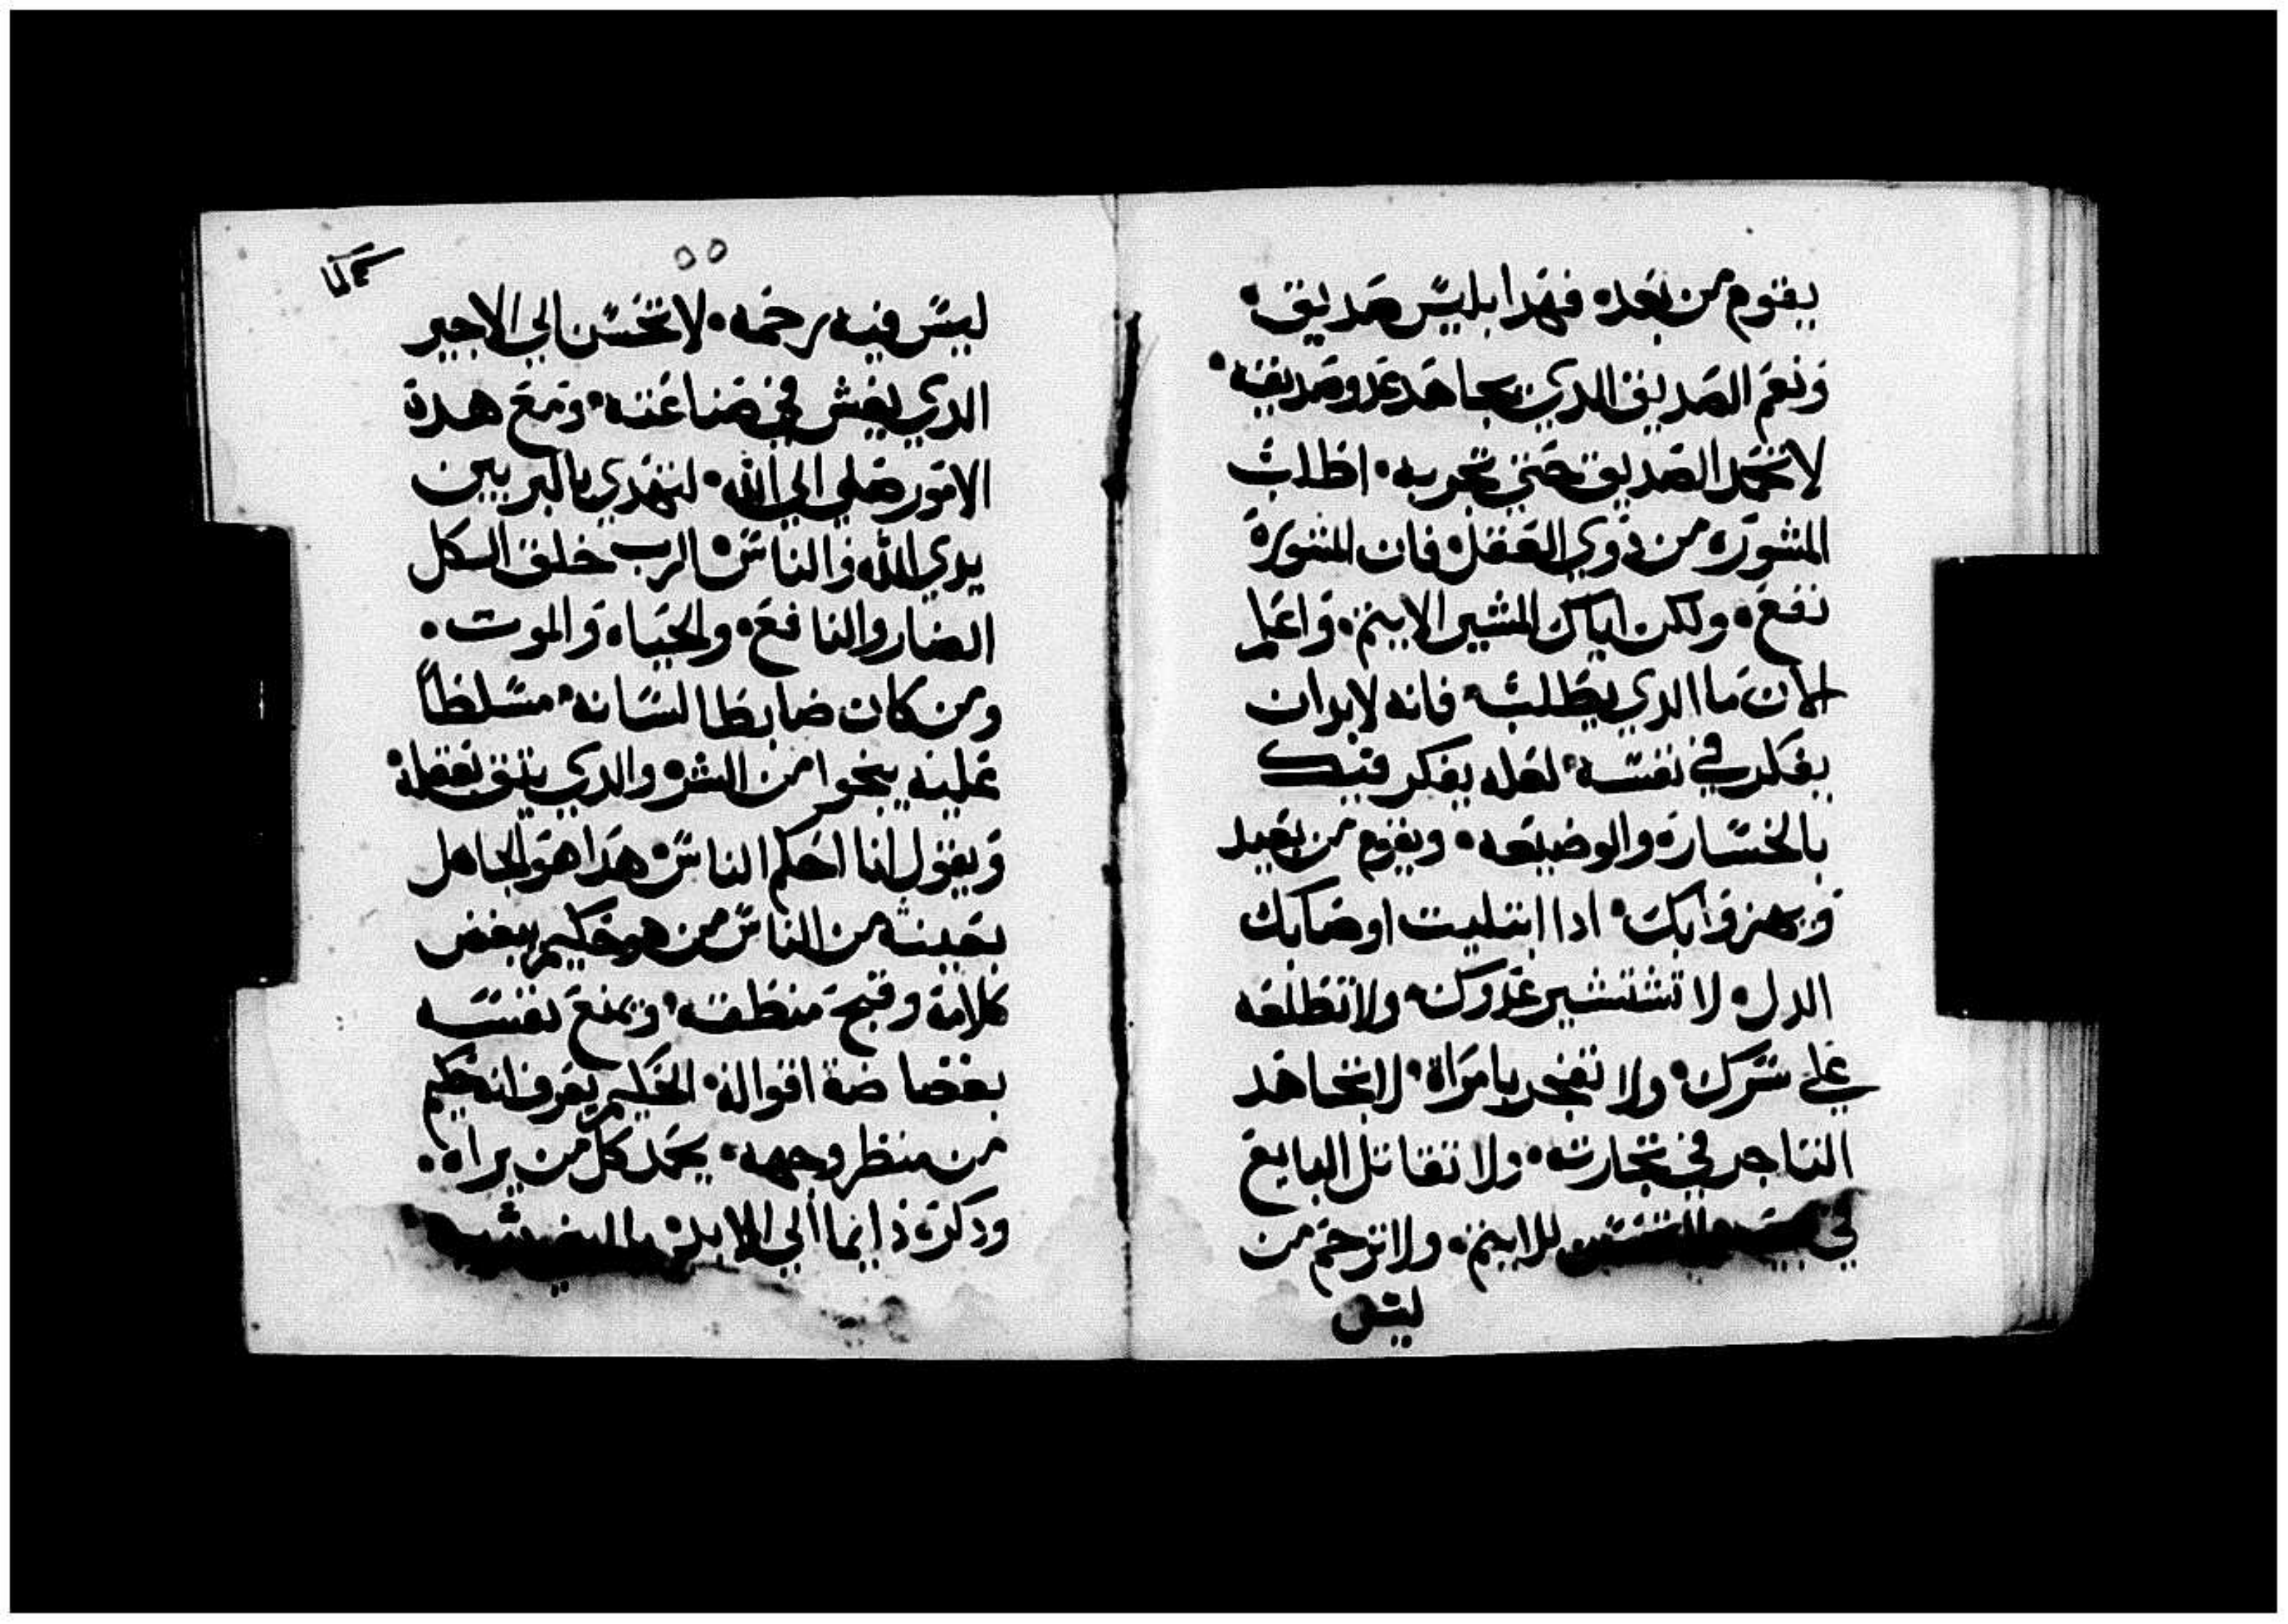 يقوم من بعده فهدا بليس صديق
ونعم الصديق الدي يجاهد عدو صديقه
لا تحمد الصديق حتي تجربه اطلب
المشوره من دوي العقل فان المشورة
نفع ولكن اياك المشير الاثيم واعلم
الان ما الدي يطلبه فانه لابد ان
يفكر في نفسه لعله يفكر فيك
بالخسارة والوضيعه ويقوم من بعيد
ويهزوا بك ادا ابتليت اوصابك
الدل لا تستشير عدوك ولا تطلعه
علي سرك ولا تفجر بامراة لا تجاهد
التاجر في تجارته ولا تقاتل البايع
في للاثيم ولا ترحم من
ليس
٥٥
ليس فيه رحمه لا تحسن الي الاجير
الدي يغش في صناعته ومع هدة
الامور صلي الي الله لتهدي بالبر بين
يدي الله والناس الرب خلق الكل
الضار والنافع والحياه والموت
ومن كان ضابطا لسانه مسلطاً
عليه ينجوا من الشر والدي يثق بعقله
ويقول انا احكم الناس هدا هو الجاهل
بعينه من الناس من هو حكيم يبغض
كلامه وقبح منطقه ويمنع نفسه
بغضاضة اقواله الحكيم يعرف انه حكيم
من منظر وجهه يحمد كل من يراه
ودكره دايما الي الابد